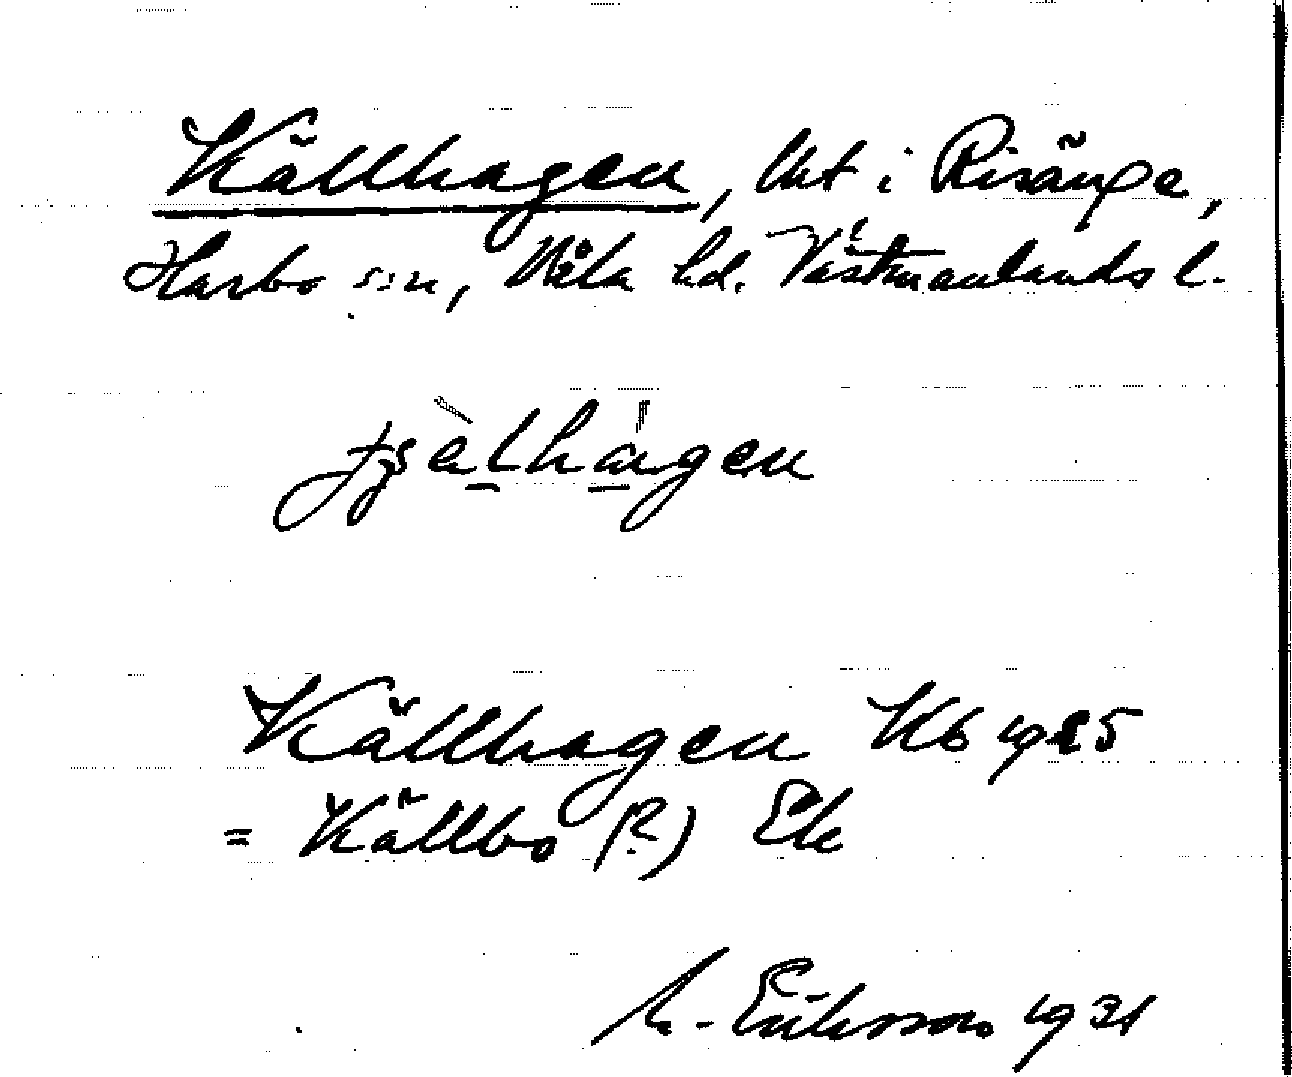 Källhagen, lht i Risänge,
Harbo sn, Våla hd. Västmanlands l.
Källhagen Kb 1925
= Källbo (?) Ek
M. Eriksson 1931